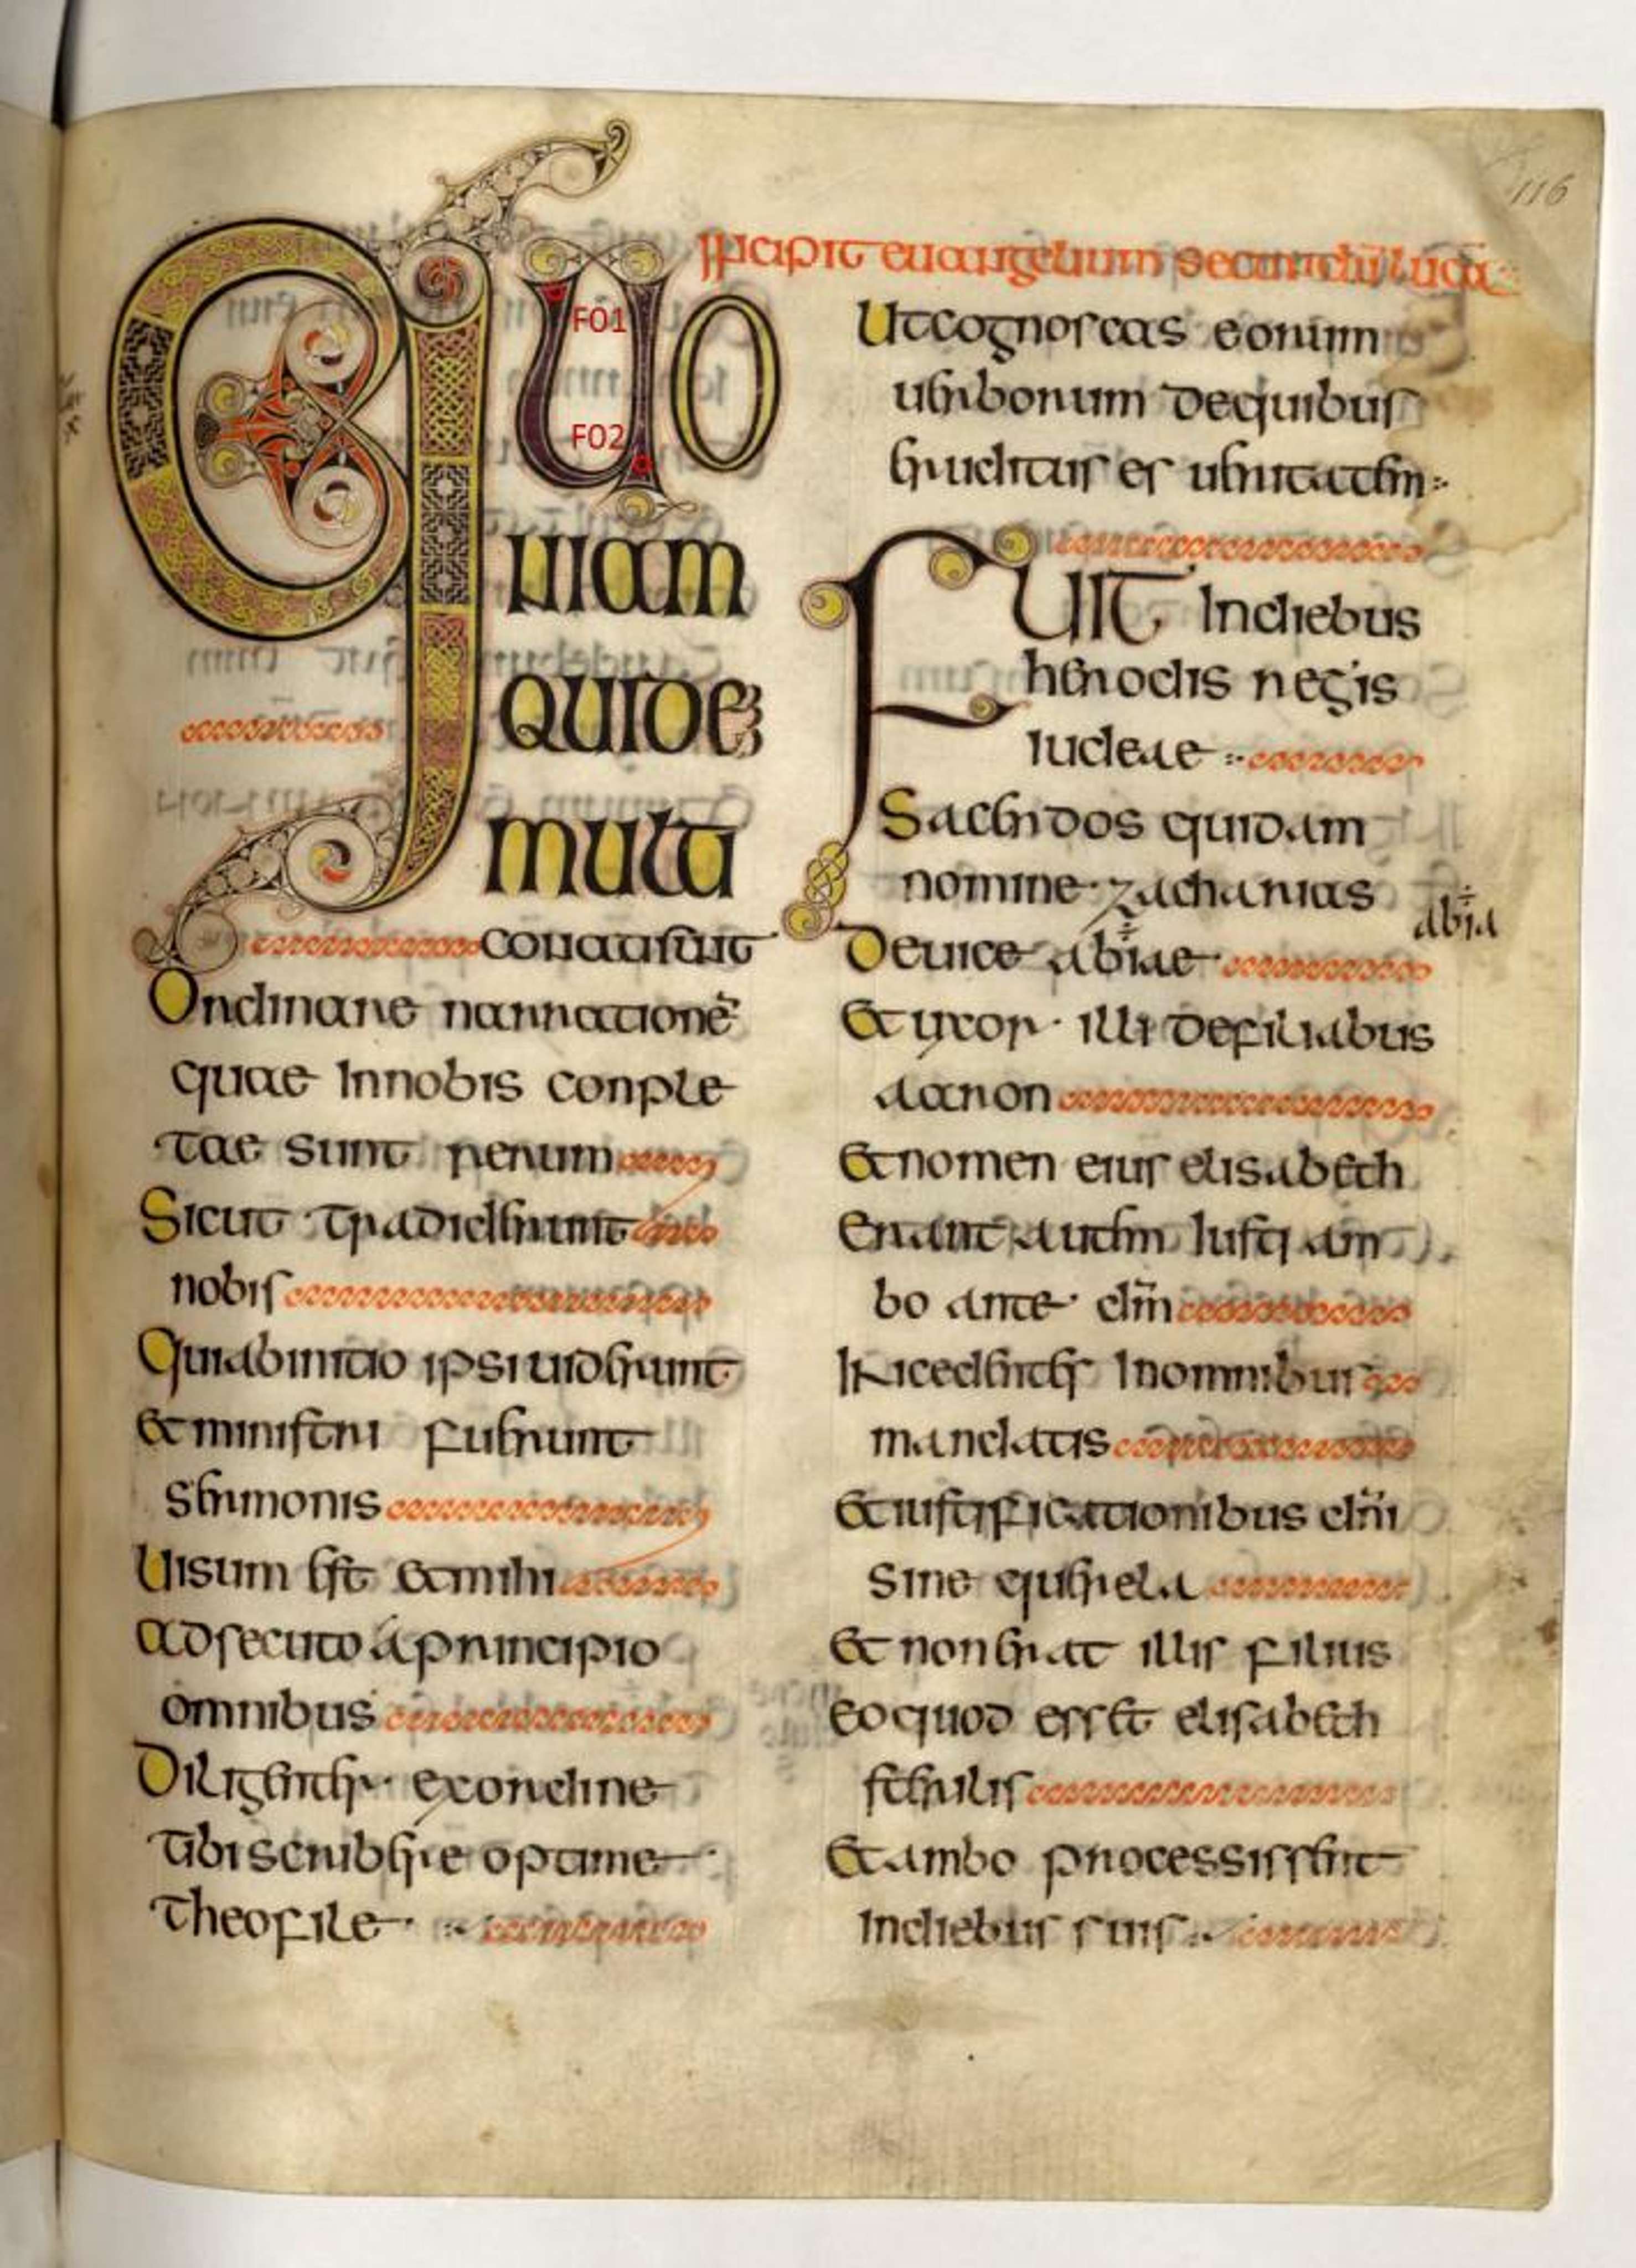 116
Incipit euangelium secundū lucā
QUO
F01
F02
niam
quide
multi
conati sunt
Ordinare narrationē
quae Innobis conple
tae sunt rerum
Sicut tradiderunt
nobis
Quiabinitio ipsi uiderunt
Et ministri fuerunt
sermonis
Uisum est Etmihi
adsecuto a principio
omnibus
Diligenter exordine
tibi scribere optime
theofile
Utcognoscas eorum
uerborum dequibus
eruditus es ueritatem
FUIT Indiebus
herodis regis
iudeae
Sacerdos quidam
nomine zacharias
abia
Deuice abiae
Et uxor illi defiliabus
aaron
Etnomen eius elisabeth
Erant autem Iusti am
bo ante dm̄
Incedentes Inomnibus
mandatis
Etiustificationibus dn̄i
sine querela
Et non erat illis filius
eoquod esset elisabeth
sterilis
Et ambo processissent
Indiebus suis